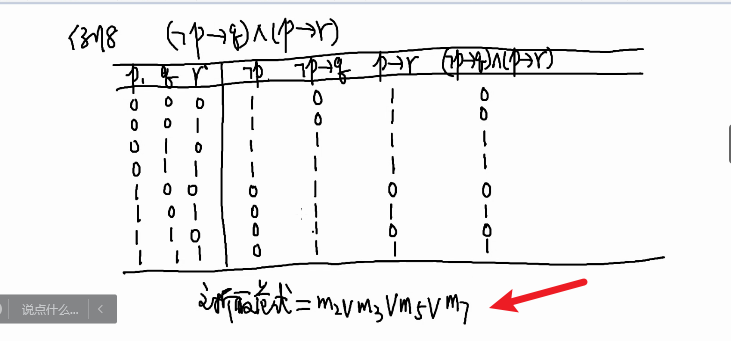 例8 (¬p→q)∧(p→r)
p q r ¬p ¬p→q p→r (¬p→q)∧(p→r)
0 0 0 1 0 1 0
0 0 1 1 0 1 0
0 1 0 1 1 1 1
0 1 1 1 1 1 1
1 0 0 0 1 0 0
1 0 1 0 1 1 1
1 1 0 0 1 0 0
1 1 1 0 1 1 1
主析取范式=m2∨m3∨m5∨m7
说点什么...